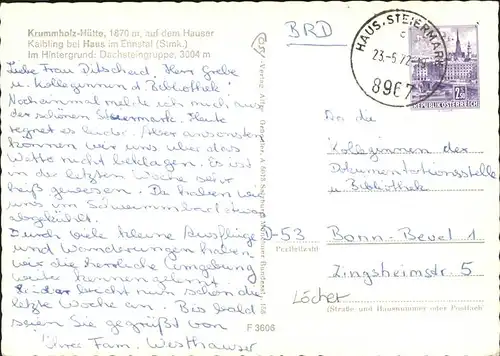 Krummholz-Hütte, 1870 m, auf dem Hauser
Kaibling bei Haus im Ennstal (Stmk.)
Im Hintergrund: Dachsteingruppe, 3004 m
Liebe Frau Ditscheid, Herr Grebe
u. Kolleginnen d. Bibliothek!
Noch einmal melde ich mich aus
der schönen Steiermark. Heute
regnet es leider. Aber ansonsten
können wir uns über das
Wetter nicht beklagen. Es ist
in der letzten Woche sehr
heiß gewesen. Da haben wir
uns im Schwimmbad etwas
abgekühlt.
Durch viele kleine Ausflüge
und Wanderungen haben
wir die herrliche Umgebung
weiter kennengelernt.
Leider bricht nun schon die
letzte Woche an. Bis bald
seien Sie gegrüßt von
Ihrer Fam. Westhauser
F 3606
BRD
HAUS, STEIERMARK
23.-5.72
8967
2S
REPUBLIK ÖSTERREICH
An die
Kolleginnen der
Dokumentationsstelle
u. Bibliothek
D-53 Bonn-Beuel 1
Postleitzahl
Zingsheimstr. 5
Löcher
(Straße und Hausnummer oder Postfach)